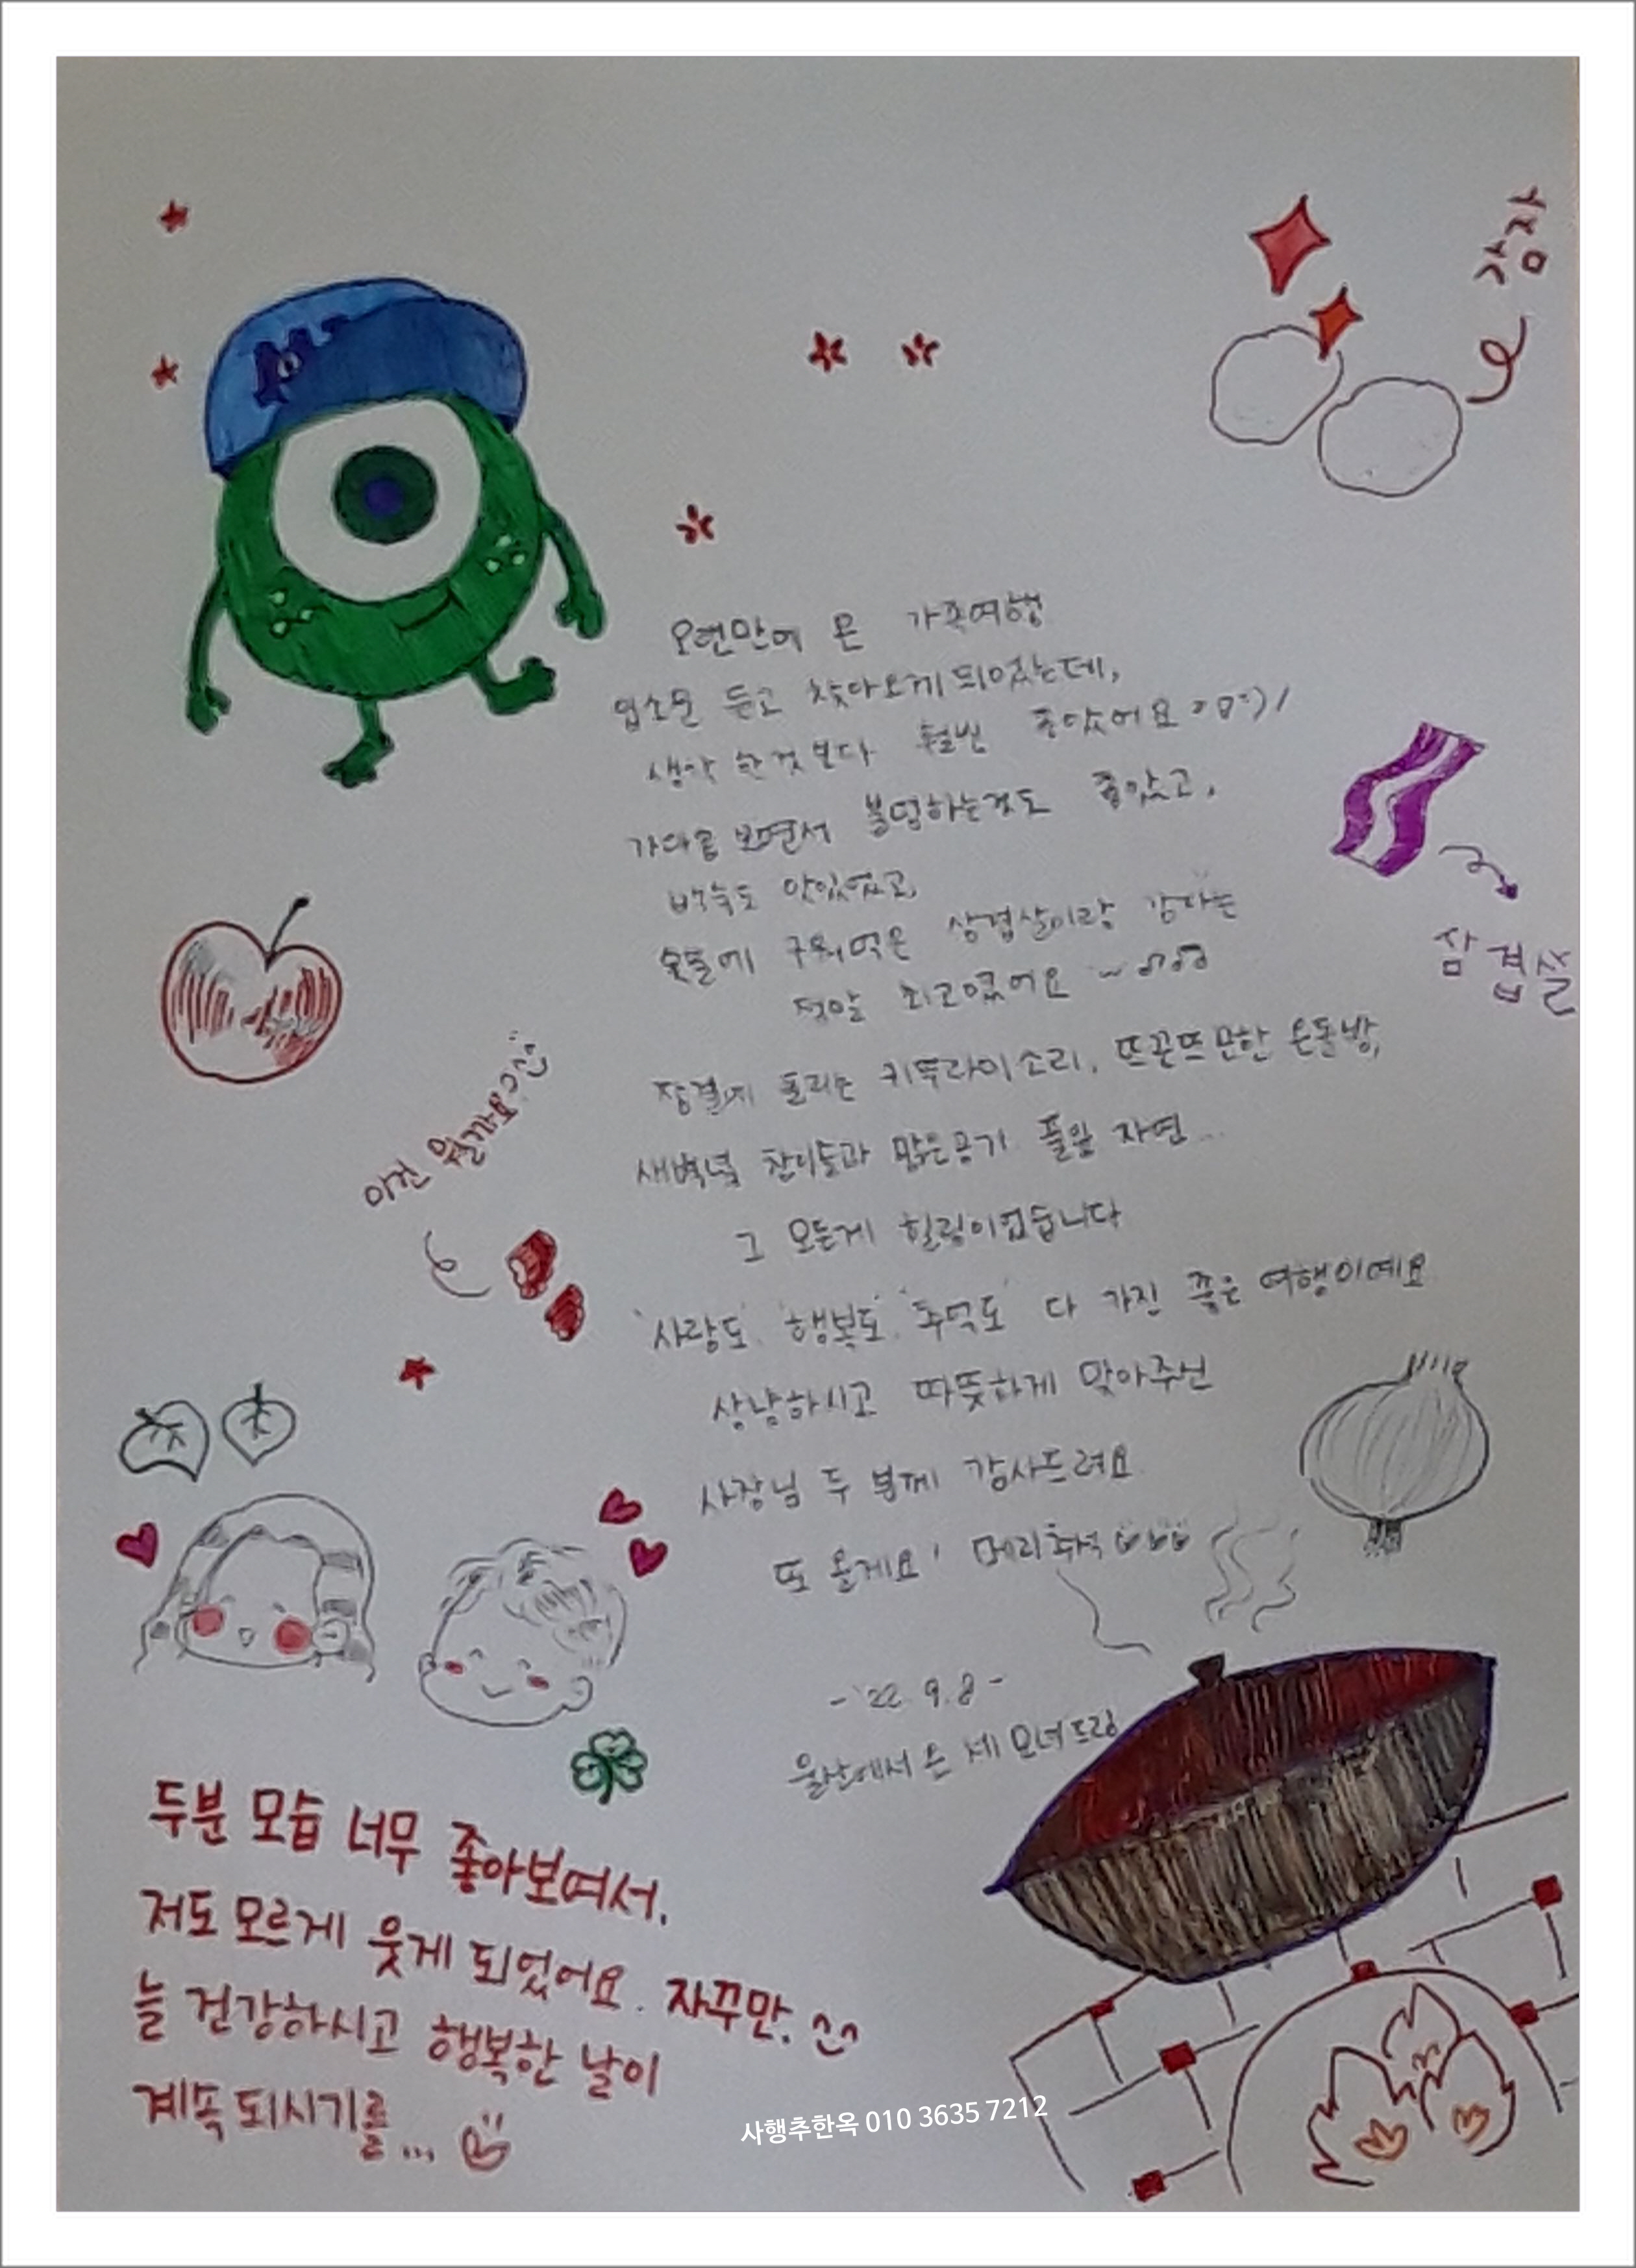 오랜만에 온 가족여행
입소문 듣고 찾아오게 되었는데,
생각 한것 보다 훨씬 좋았어요
가마솥 보면서 불멍하는것도 좋았고,
백숙도 맛있었고,
숯불에 구워먹은 삼겹살이랑 감자는
정말 최고였어요 ~♫♫
잠결에 들리는 귀뚜라미소리, 뜨끈뜨끈한 온돌방,
새벽녘 잔디들과 맑은공기 풀잎 자연...
그 모든게 힐링이었습니다
'사랑도' '행복도' '추억도' 다 가진 좋은 여행이예요
상냥하시고 따뜻하게 맞아주신
사장님 두 분께 감사드려요
또 올게요! 메리추석
-'22. 9. 8-
울산에서 온 세 모녀드림
삼겹쌀
이건 뭘까요?
두분 모습 너무 좋아보여서,
저도 모르게 웃게 되었어요. 자꾸만. ^^
늘 건강하시고 행복한 날이
계속 되시기를...
사행추한옥 010 3635 7212